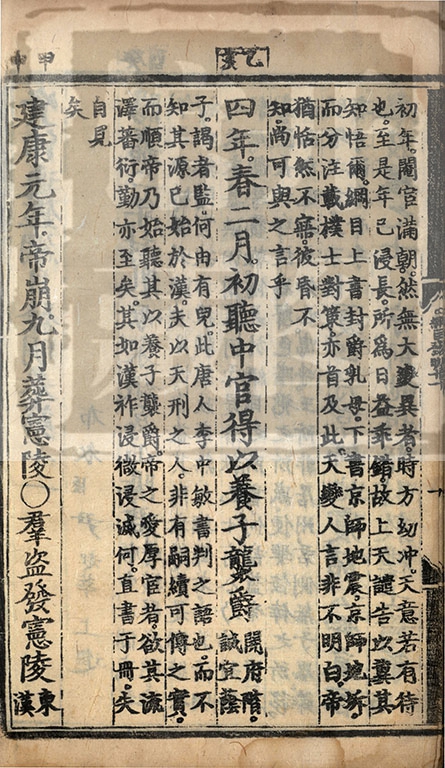 乙亥
甲申
初年。閹官滿朝。然無大變異者。時方幼冲。天意若有待
也。至是年已浸長。所爲日益乖錯。故上天譴告以冀其
知悟爾。綱目上書封爵乳母。下書京師地震。京師地坼。
而分注載樸士對策。亦首及此。天變人言非不明白。帝
猶恬然不寤。彼昏不
知。尚可與之言乎
四年。春二月。初聽中官得以養子襲爵 開府階。誠宜蔭
子。謁者監。何由有兒。此唐人李中敏書判之語也。而不
知其源已始於漢。夫以天刑之人。非有嗣續可傳之實。
而順帝乃始聽其以養子襲爵。帝之愛厚宦者。欲其流
澤蕃衍。勤亦至矣。其如漢祚浸微浸滅何。直書于冊。失
自見
矣
建康元年。帝崩。九月葬憲陵〇羣盜發憲陵
東漢